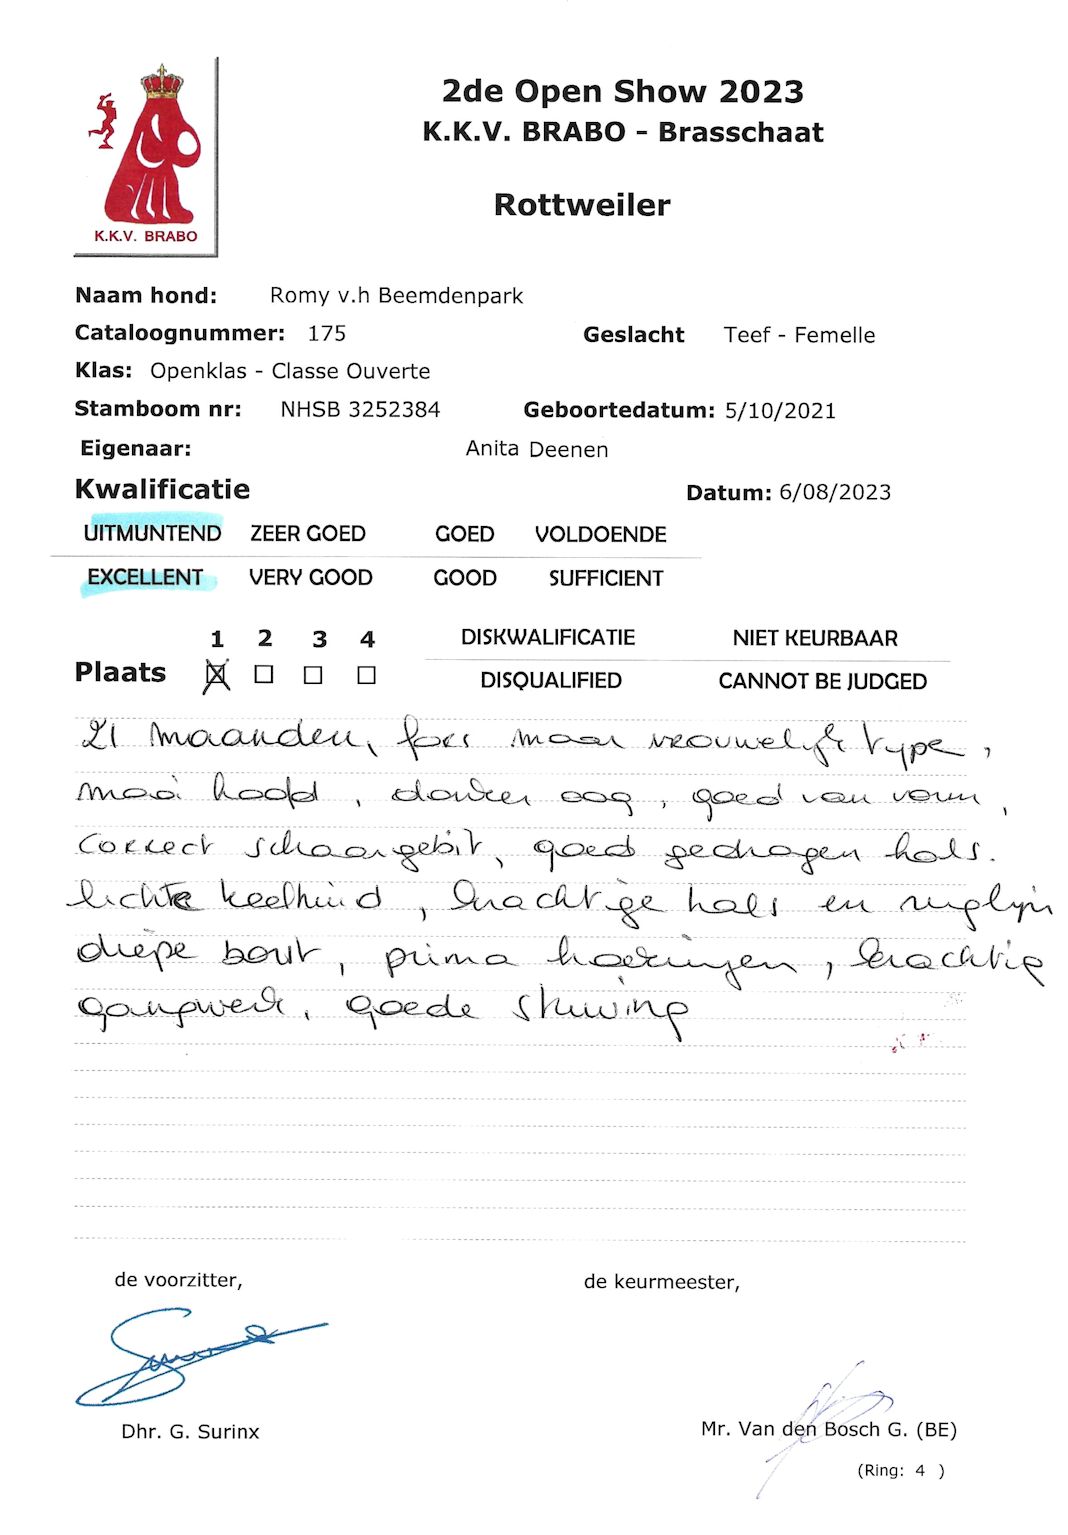 2de Open Show 2023
K.K.V. BRABO - Brasschaat
Rottweiler
K.K.V. BRABO
Naam hond: Romy v.h Beemdenpark
Cataloognummer: 175 Geslacht Teef - Femelle
Klas: Openklas - Classe Ouverte
Stamboom nr: NHSB 3252384 Geboortedatum: 5/10/2021
Eigenaar: Anita Deenen
Kwalificatie Datum: 6/08/2023
UITMUNTEND ZEER GOED GOED VOLDOENDE
EXCELLENT VERY GOOD GOOD SUFFICIENT
1 2 3 4 DISKWALIFICATIE NIET KEURBAAR
Plaats DISQUALIFIED CANNOT BE JUDGED
21 maanden, fors maar vrouwelijk type,
mooi hoofd, donker oog, goed van vorm,
correct schaargebit, goed gedragen hals.
lichte keelhuid, krachtige hals en ruglijn
diepe borst, prima hoekingen, krachtig
gangwerk, goede stuwing
de voorzitter, de keurmeester,
Dhr. G. Surinx Mr. Van den Bosch G. (BE)
(Ring: 4 )